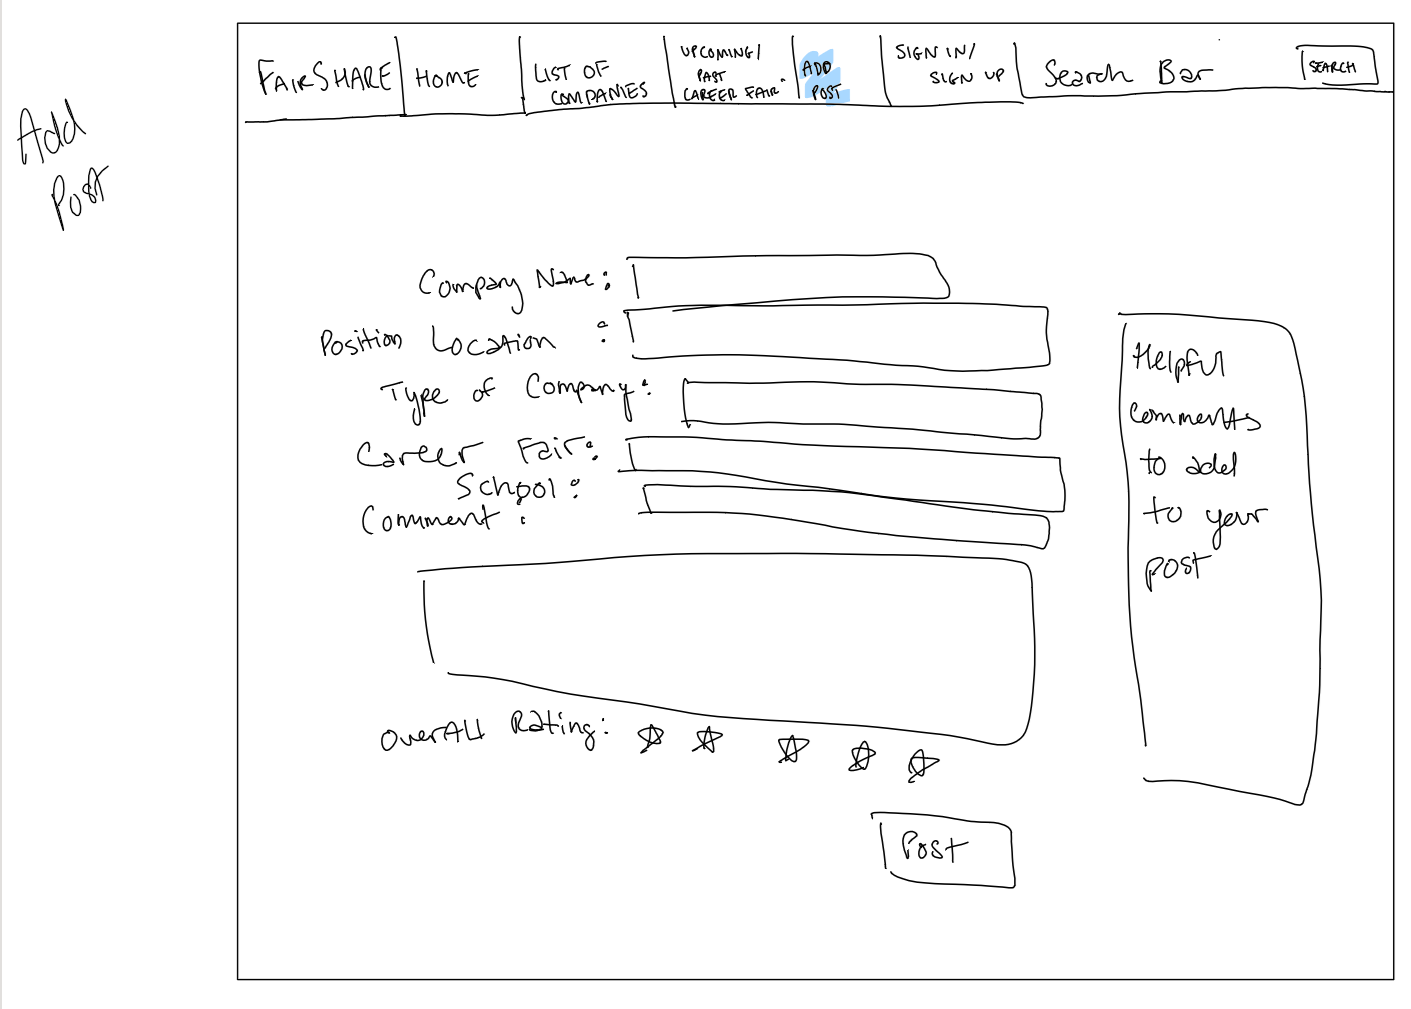 Add
Post
FAIRSHARE
HOME
LIST OF
COMPANIES
UPCOMING/
PAST
CAREER FAIR
ADD
POST
SIGN IN/
SIGN UP
Search Bar
SEARCH
Company Name:
Position Location :
Type of Company:
Career Fair:
School:
Comment:
Overall Rating:
Post
Helpful
comments
to add
to your
post